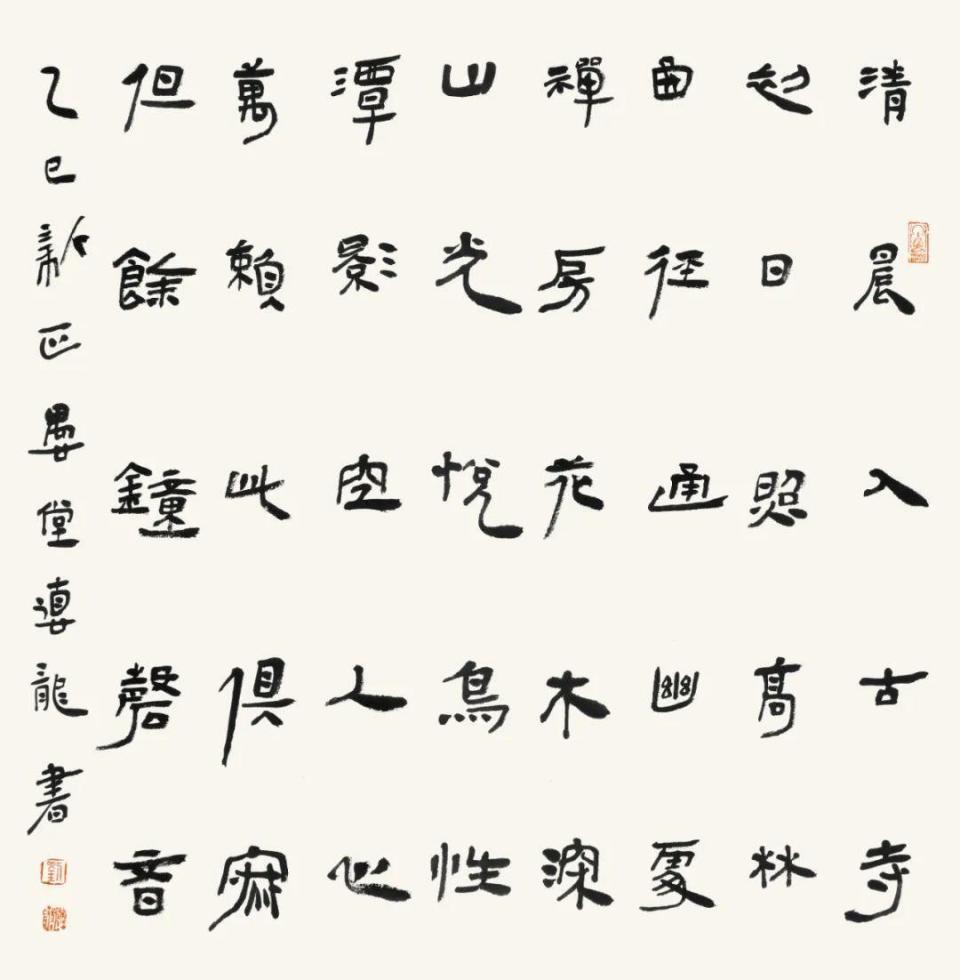 清晨入古寺
初日照高林
曲徑通幽處
禪房花木深
山光悅鳥性
潭影空人心
萬賴此俱寂
但餘鐘磬音
乙巳新正堂龍書